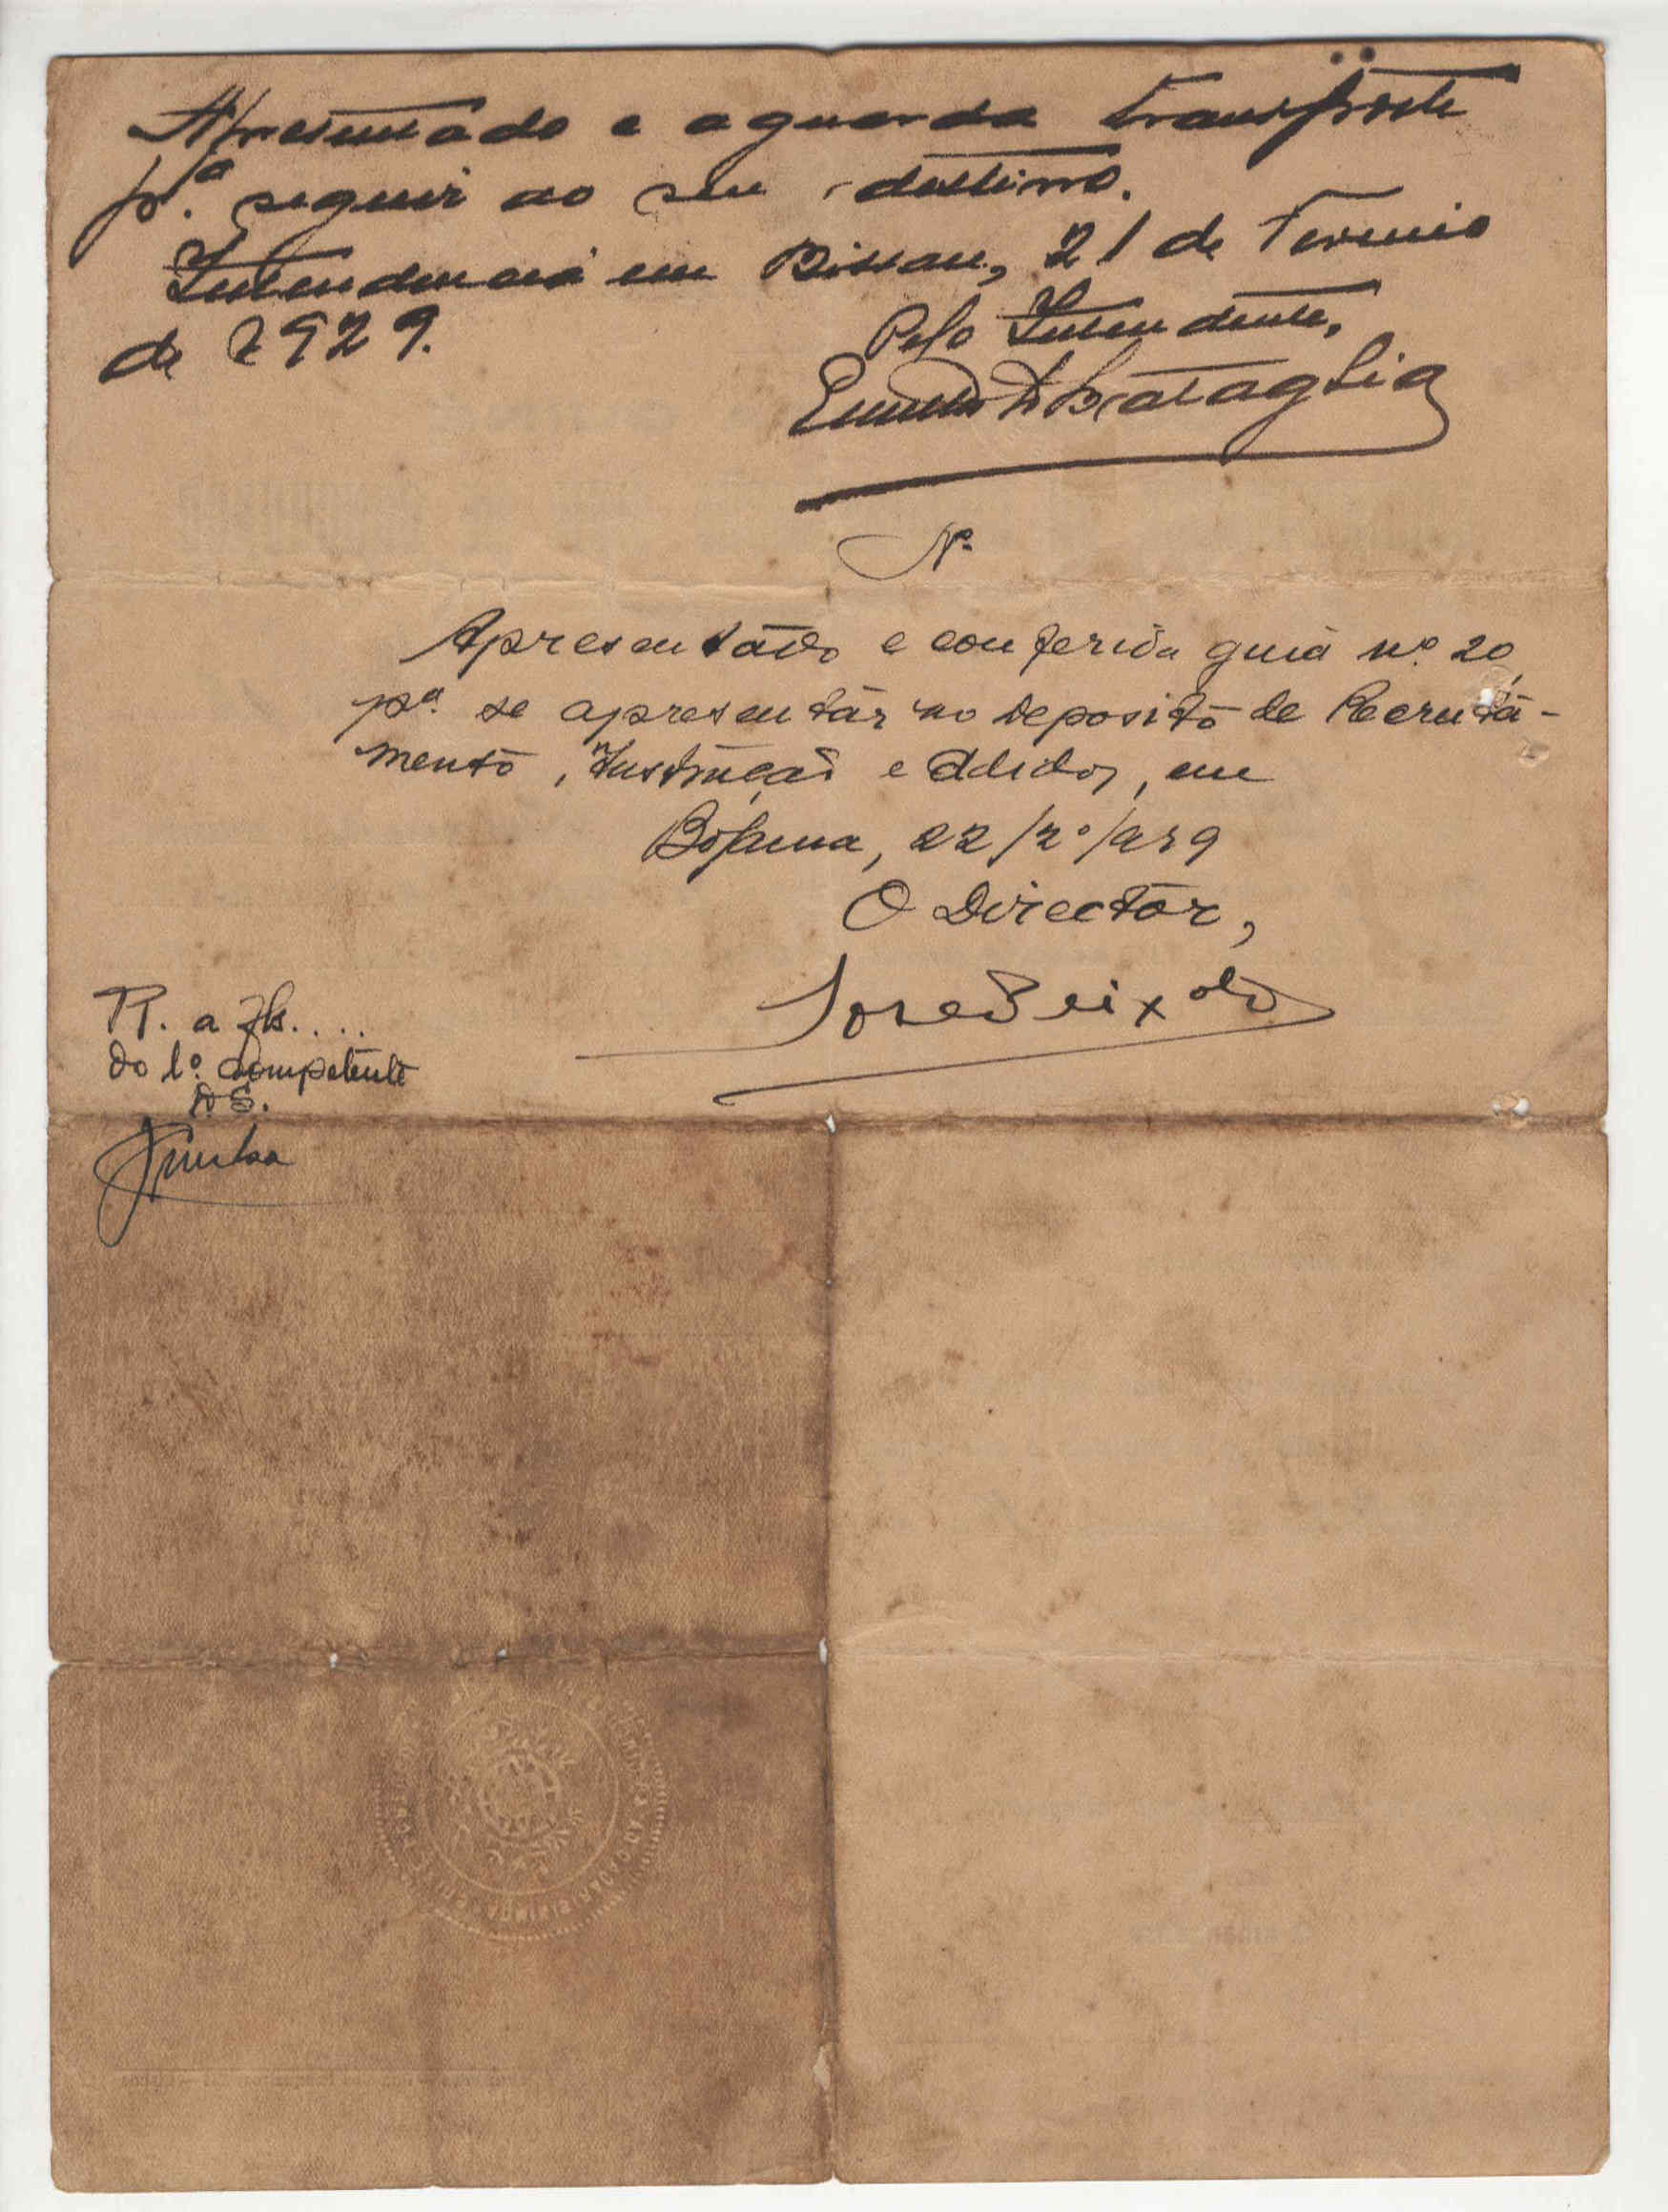 Apresentado e aguarda transporte
p.ª seguir ao seu destino.
Intendencia em Bissau, 21 de
de 1929.
Pelo Intendente,
Nº
Apresentado e conferida guia nº 20,
pª. se apresentár no deposito de Recrutá-
mento, Instrução e Adidos, em
Bolama, 22/2º/929
O Director,
José Peixoto
R. a fls....
do lº. competente
D. S.